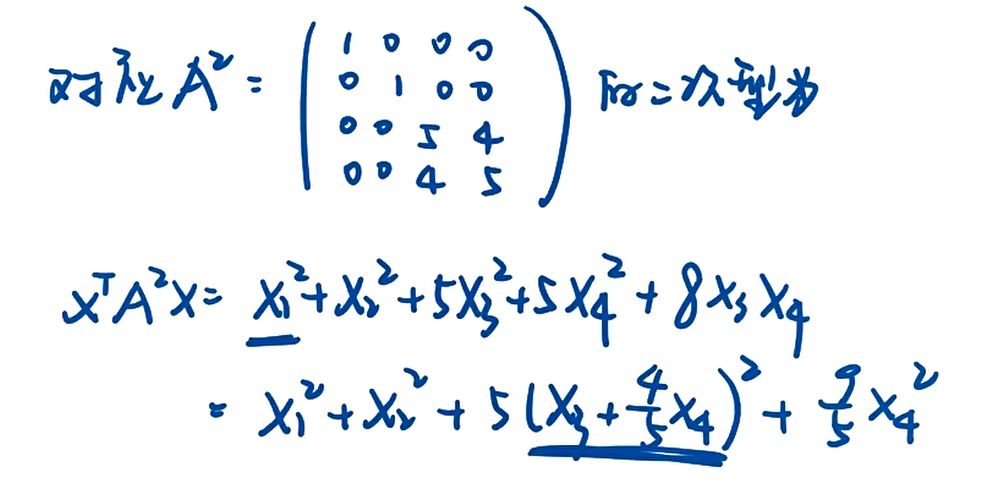 对称 A² = ( 1 0 0 0 ) 所二次型为
0 1 0 0
0 0 5 4
0 0 4 5
xᵀA²x = x₁² + x₂² + 5x₃² + 5x₄² + 8x₃x₄
= x₁² + x₂² + 5(x₃ + 4/5 x₄)² + 9/5 x₄²